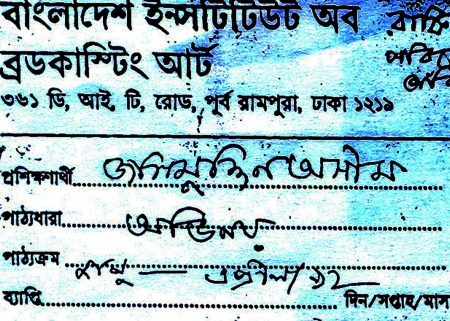 বাংলাদেশ ইন্সটিটিউট অব
ব্রডকাস্টিং আর্ট
৩৬১ ডি, আই, টি, রোড, পূর্ব রামপুরা, ঢাকা ১২১৯
প্রশিক্ষণার্থী জসিমুদ্দিন অসীম
পাঠ্যধারা অভিনয়
পাঠ্যক্রম জানু — এপ্রিল/৯২
ব্যাপ্তি দিন/সপ্তাহ/মাস